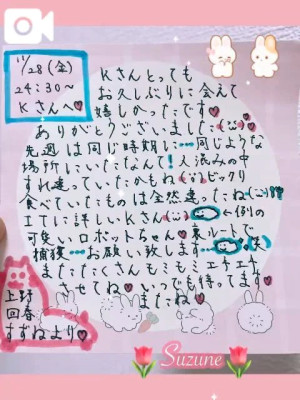 11/28(金)
24:30〜
Kさんへ♥
Kさんとっても
お久しぶりに会えて
嬉しかったです♥
ありがとうございました
先週は同じ時期に…同じような
場所にいたなんて!人混みの中
すれ違っていたかもね ビックリ
食べていたものは全然違ったね
ITに詳しいKさん ←例の
可愛いロボットちゃん♥裏ルートで
捕獲…お願い致します…(笑)
またたくさんモミモミエチエチ
させてね♡いつでも待ってます♥
またね♥
上野
回春
すずねより♥
Suzune